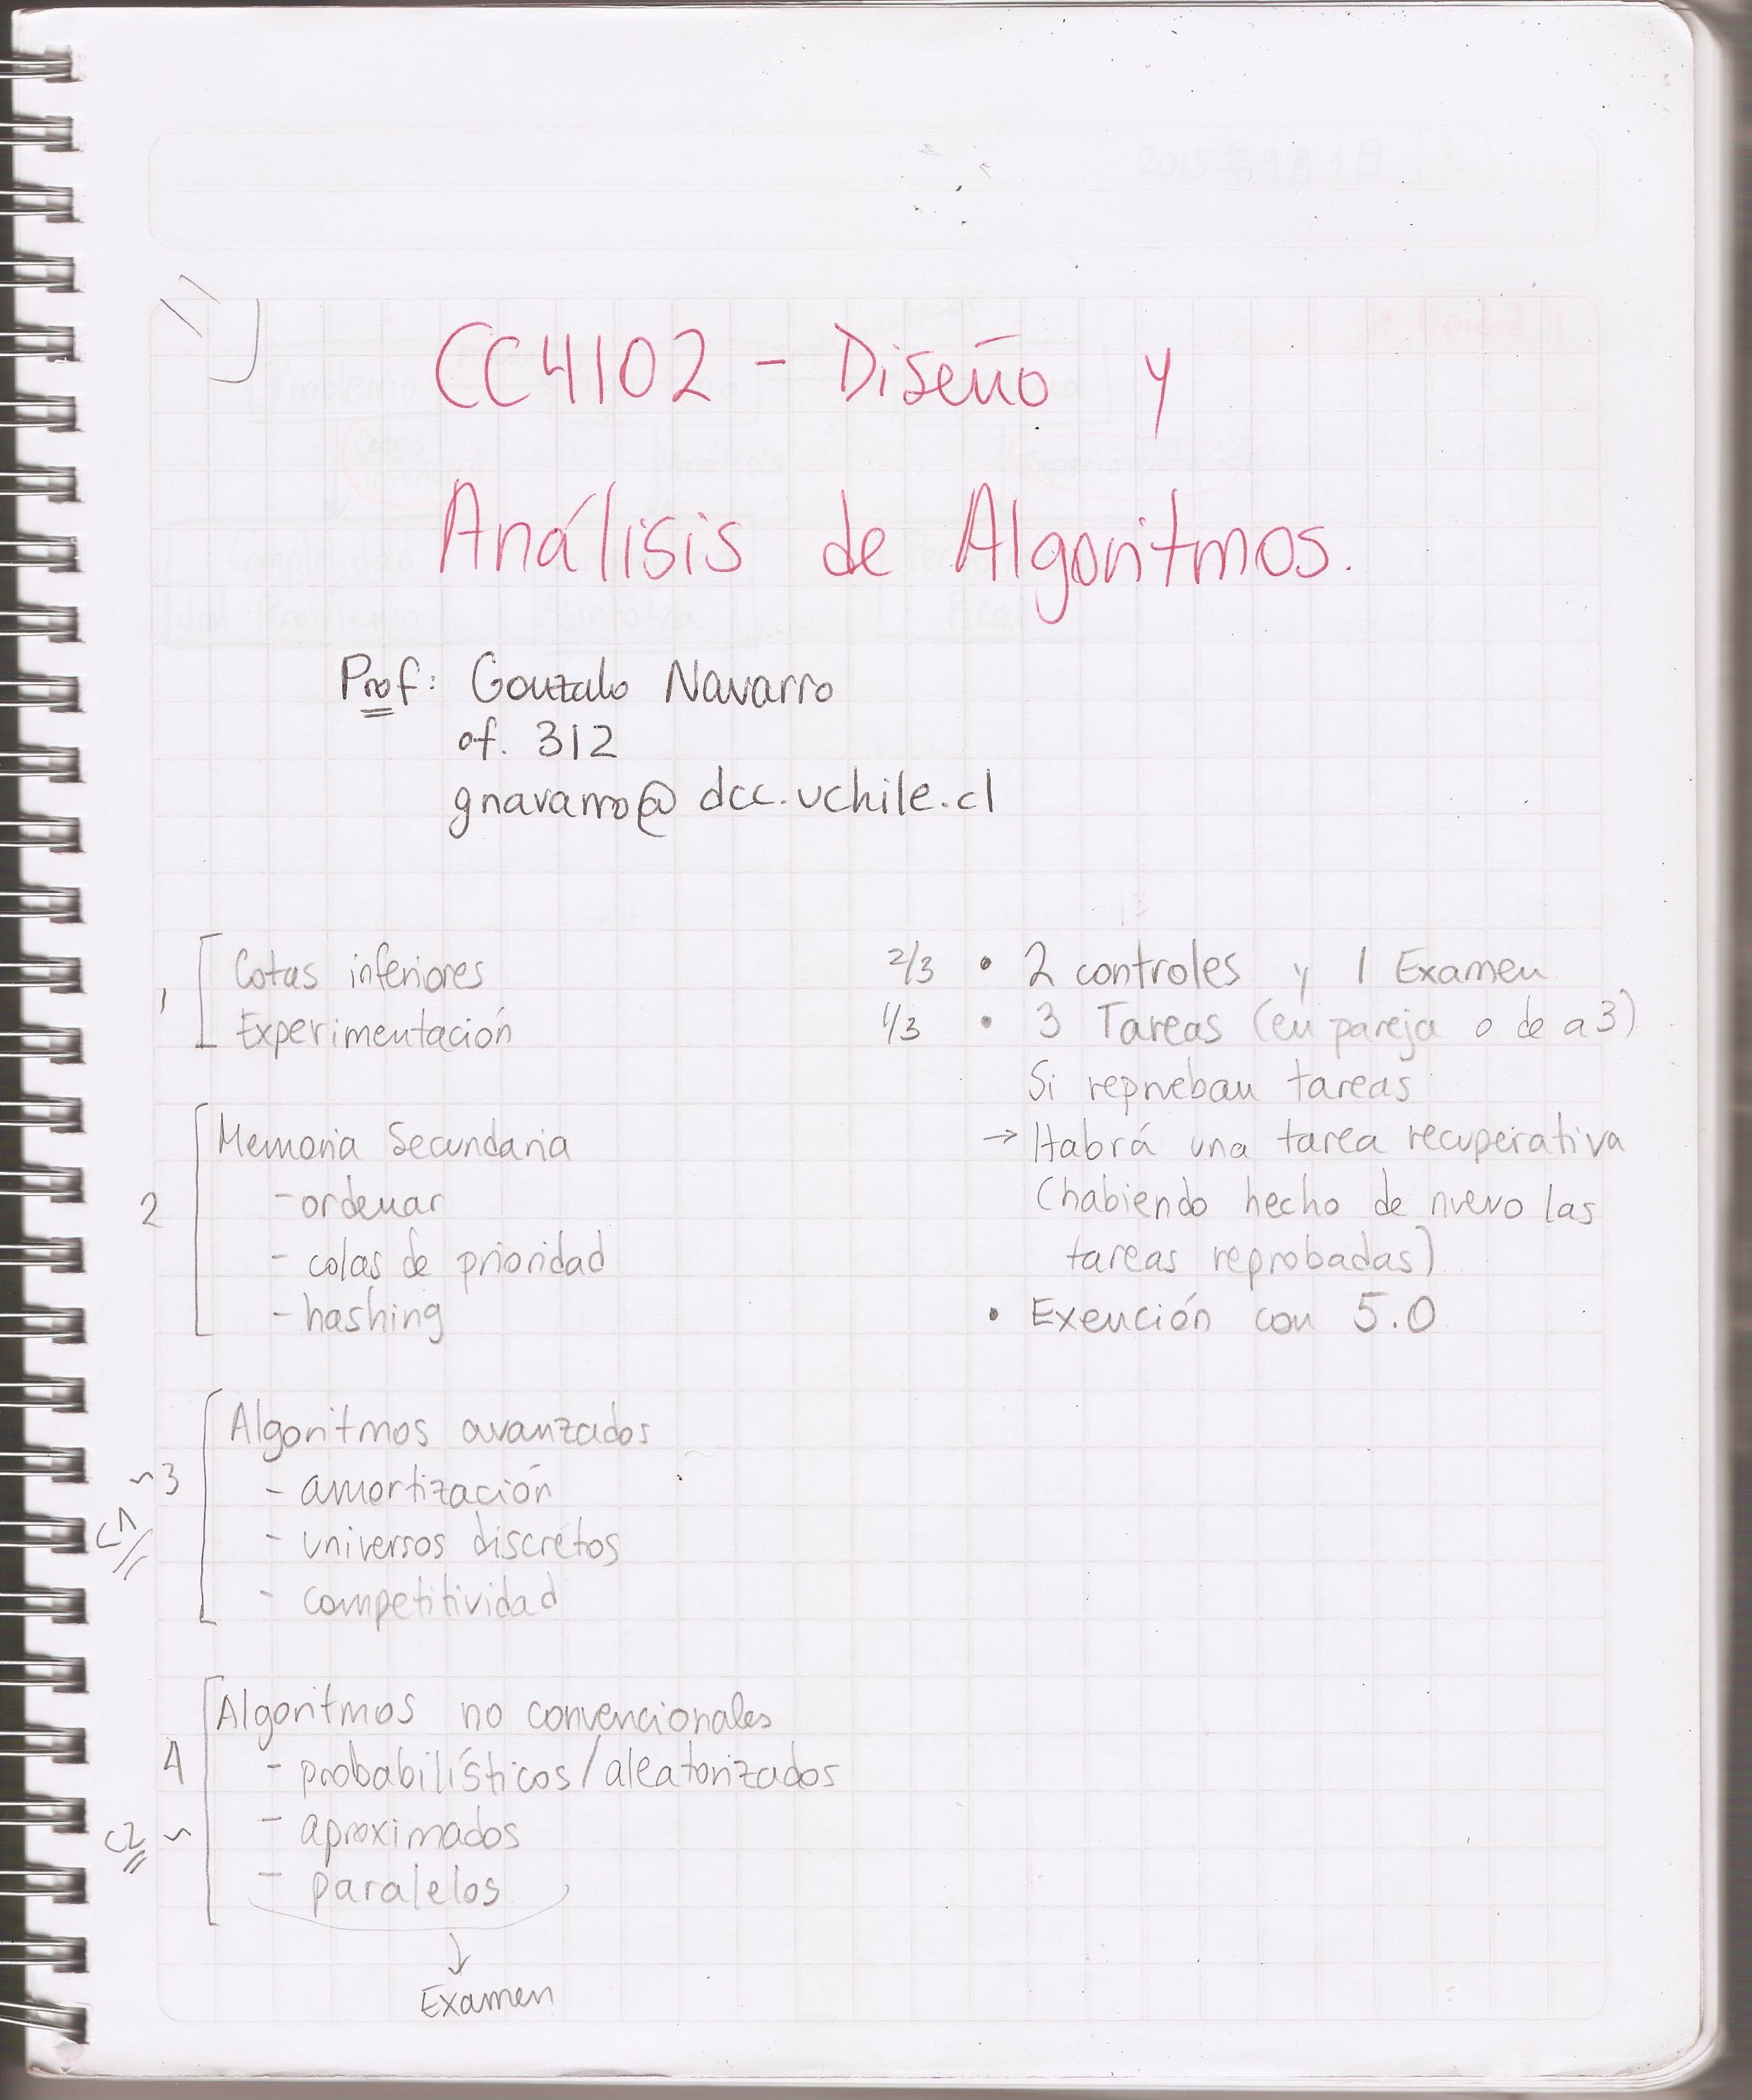 CC4102 - Diseño y
Análisis de Algoritmos.
Prof: Gonzalo Navarro
of. 312
gnavarro@dcc.uchile.cl
1
Cotas inferiores
Experimentación
2
Memoria Secundaria
- ordenar
- colas de prioridad
- hashing
~3
C1
Algoritmos avanzados
- amortización
- universos discretos
- competitividad
4
C2 ~
Algoritmos no convencionales
- probabilísticos/aleatorizados
- aproximados
- paralelos
↓
Examen
2/3 • 2 controles y 1 Examen
1/3 • 3 Tareas (en pareja o de a 3)
Si reprueban tareas
→ Habrá una tarea recuperativa
(habiendo hecho de nuevo las
tareas reprobadas)
• Exención con 5.0